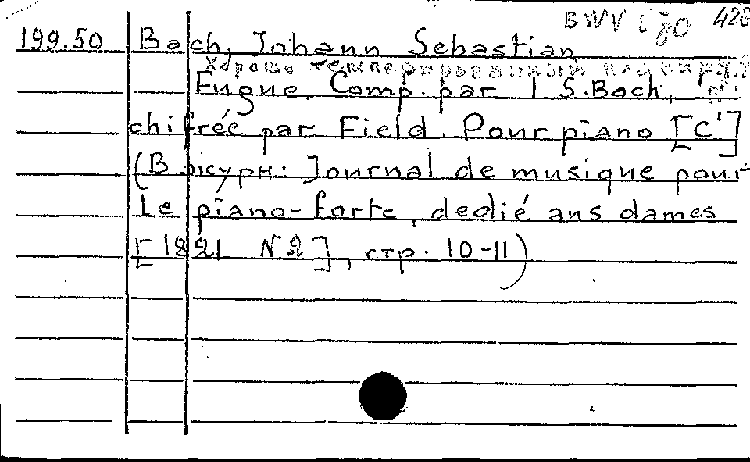 BWV 428
199.50 Bach, Johann Sebastian
Хорошо темперированный клавир.
Fugue. Comp. par I S. Bach,
chiffrée par Field. Pour piano [C']
(В журн: Journal de musique pour
le piano-forte, dedié aus dames
[1821 N2], стр. 10-11)